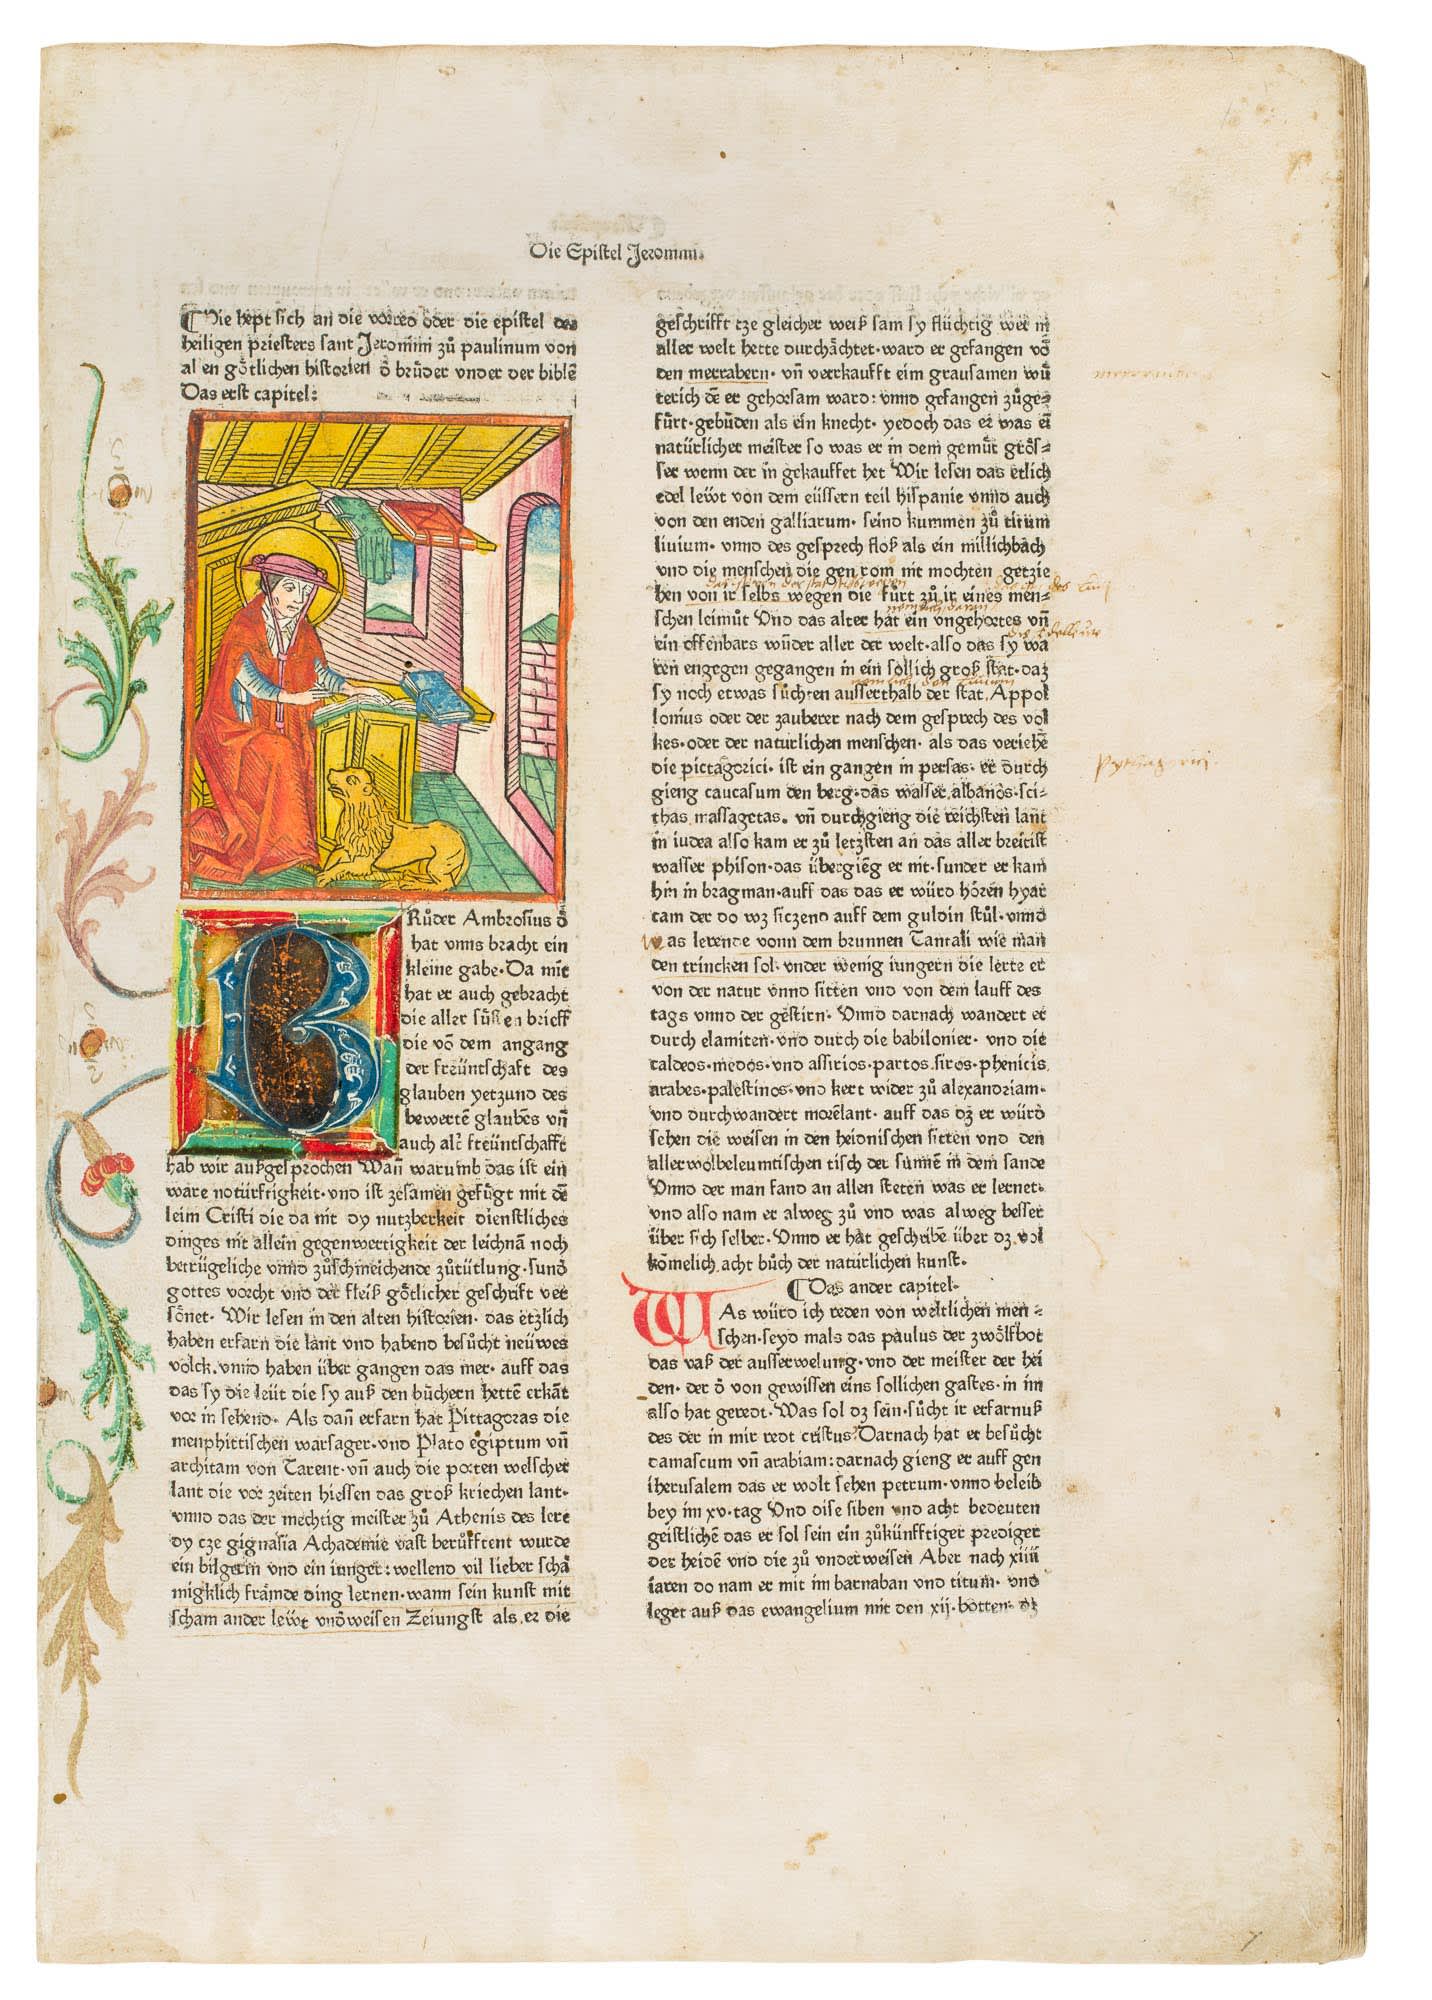 Die Epistel Jeromini.
¶ Hie hept sich an die vorred oder die epistel des
heiligen priesters sant Jeromini zů paulinum von
allen götlichen historien ð brůder vnder der biblē
Das erst capitel:
BRůder Ambrosius ð
hat vnns bracht ein
kleine gabe· Da mit
hat er auch gebracht
die aller süssen brieff
die vō dem angang
der freüntschaft des
glauben yetzund des
bewertē glaubēs vn̄
auch alt̄ freüntschafft
hab wir außgesprochen Wan̄ warumb das ist ein
ware notürftigkeit· vnd ist zesamen gefůgt mit dē
leim Cristi die da nit dy nutzberkeit dienstliches
dinges nit allein gegenwertigkeit der leichnā noch
betrügeliche vnnd zůschmeichende zůtütlung· sund
gottes vorcht vnd der fleiß götlicher geschrift ver
sönet· Wir lesen in den alten historien· das etzlich
haben erfarn die lant vnd habend besůcht neüwes
volck· vnnd haben über gangen das mer· auff das
das sy die leüt die sy auß den bůchern hettē erkāt
vor in sehend· Als dan̄ erfarn hat Pittagoras die
menphittischen warsager· vnd Plato egiptum vn̄
architam von Tarent· vn̄ auch die porten welscher
lant die vor zeiten hiessen das groß kriechen lant·
vnnd das der mechtig meister zů Athenis des lere
dy tze gignasia Achademie vast berůfftent wurde
ein bilgerin vnd ein iunger: wellend vil lieber schā
migklich främde ding lernen· wann sein kunst mit
scham ander lewt vndweisen Zeiungst als er die
geschrifft tze gleicher weiß sam sy flüchtig wer in
aller welt hette durchächtet· ward er gefangen vō
den merrabern· vn̄ verkaufft eim grausamen wů
terich dē er gehorsam ward: vnnd gefangen zůge=
fůrt· gebůden als ein knecht· yedoch das er was eī
natürlicher meister so was er in dem gemüt grös=
ser wenn der in gekauffet het Wir lesen das etlich
edel lewt von dem eüssern teil hispanie vnnd auch
von den enden galliarum· seind kummen zů titum
liuium· vnnd des gesprech floß als ein millichbach
vnd die menschen die gen rom nit mochten getzie
hen von ir selbs wegen die fůrt zů ir eines men=
schen leimůt Vnd das alter hat ein vngehortes vn̄
ein offenbars wūder aller der welt· also das sy wa
ren engegen gegangen in ein sollich groß stat· daz
sy noch etwas sůchten ausserthalb der stat. Appol
lonius oder der zauberer nach dem gesprech des vol
kes· oder der naturlichen menschen· als das veriehē
die pictagorici· ist ein gangen in persas· er durch
gieng caucasum den berg· das wasser albanos· sci=
thas massagetas. vn̄ durchgieng die reichsten lant
in iudea also kam er zů letzsten an das aller breitist
wasser phison· das übergiēg er nit· sunder er kam
hin in bragman· auff das das er würd hören hyar
cam der do wz siczend auff dem guldin stůl· vnnd
was lerende vonn dem brunnen Tantali wie man
den trincken sol· vnder wenig iungern die lerte er
von der natur vnnd sitten vnd von dem lauff des
tags vnnd der gestirn· Vnnd darnach wandert er
durch elamiten· vnd durch die babilonier· vnd die
caldeos· medos· vnd assirios· partos· siros· phenicis
arabes· palestinos· vnd kert wider zů alexandriam·
vnd durchwandert morēlant· auff das dz er würd
sehen die weisen in den heidnischen sitten vnd den
allerwolbeleumtischen tisch der sunnē in dem sande
Vnnd der man fand an allen steten was er lernet·
vnd also nam er alweg zů vnd was alweg besser
über sich selber· Vnnd er hat geschribē über dz vol
kōmelich acht bůch der natürlichen kunst.
¶ Das ander capitel·
WAs würd ich reden von weltlichen men=
schen· seyd mals das paulus der zwölfbot
das vaß der ausserwelung· vnd der meister der hei
den· der ð von gewissen eins sollichen gastes· in im
also hat geredt· Was sol dz sein· sůcht ir erfarnuß
des der in mir redt cristus? Darnach hat er besůcht
damascum vn̄ arabiam: darnach gieng er auff gen
iherusalem das er wolt sehen petrum· vnnd beleib
bey im xv· tag Vnd dise siben vnd acht bedeuten
geistlichē das er sol sein ein zůkünfftiger prediger
der heidē vnd die zů vnderweisen Aber nach xiiii
iaren do nam er mit im barnaban vnd titum· vnd
leget auß das ewangelium mit den xij· botten· dz